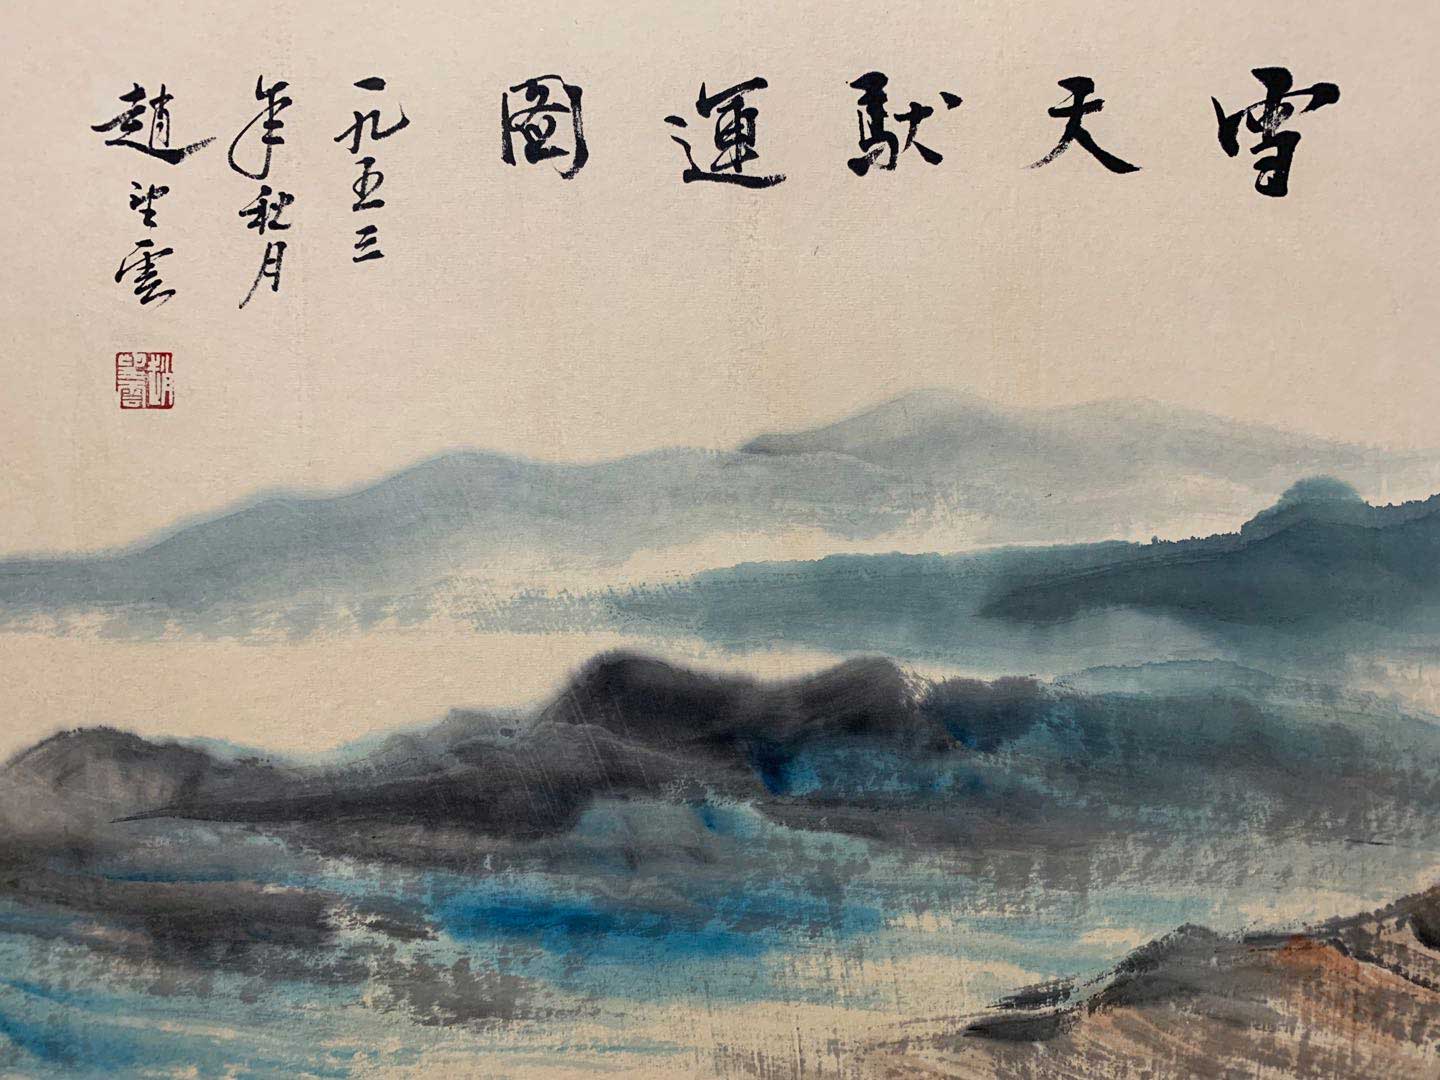 雪天馱運圖
一九五三
年秋月
趙望雲
趙望雲